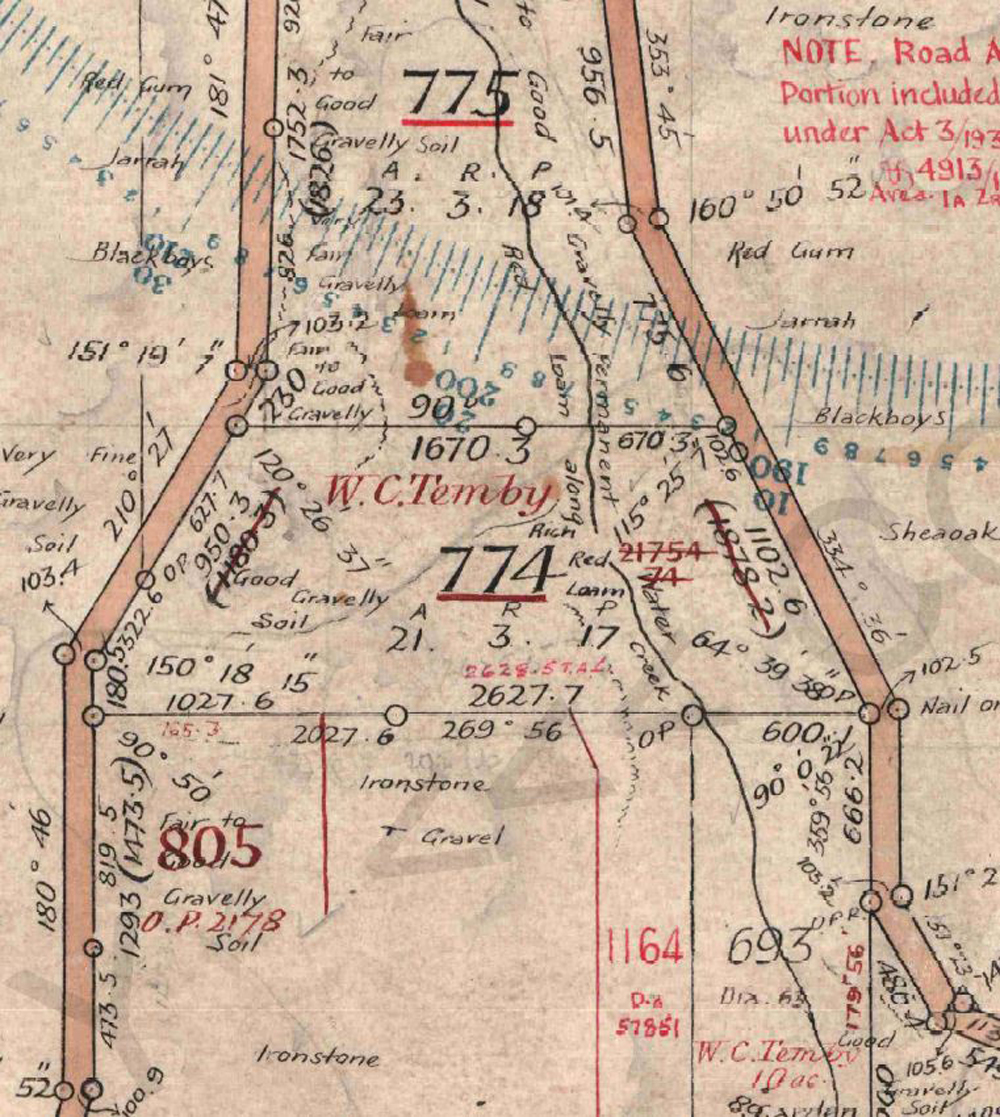 Ironstone
NOTE. Road A
Portion included
under Act 3/193
4913/
Area. 1A
181° 47
1752.3
(1826)
826.
Fair
to
Good
Gravelly Soil
775
A. R. P
23. 3. 18
to
Good
956.5
353° 45'
160° 50' 52"
Red Gum
Jarrah
Blackboys
Red Gum
Jarrah
Blackboys
Sheaoak
Very
Fair
Gravelly
Loam
Red
Gravelly
Loam
along
Permanent
Water
Creek
103.2
151° 19' 7"
Fair
to
Good
Gravelly
230
90°
1670.3
670.3
735.6
102.6
Very Fine
Gravelly
Soil
103.4
210° 27'
627.7
950.3
(1180.3)
OP
322.6
180.5
120° 26' 37"
W.C.Temby
115° 25'
(1878.2)
1102.6
334° 36'
Rich
Red
Loam
774
21754
74
Good
Gravelly
Soil
A R P
21. 3. 17
64° 39' 38"
OP
102.5
Nail on
150° 18' 15"
1027.6
2627.7
165.3
2027.6
269° 56
OP
600.1
90° 50'
90° 0' 22"
359° 56'
666.2
Ironstone
Gravel
180° 46
819.5
1293 (1473.5)
473.5
Fair to
Good
Gravelly
Soil
805
O.P. 2178
1164
57851
693
Dix. 63
W.C.Temby
10ac.
Garden
103.2
151° 2
153° 23'
179° 56'
486
Good
Gravelly
Soil
105.6
Ironstone
52"
100.9